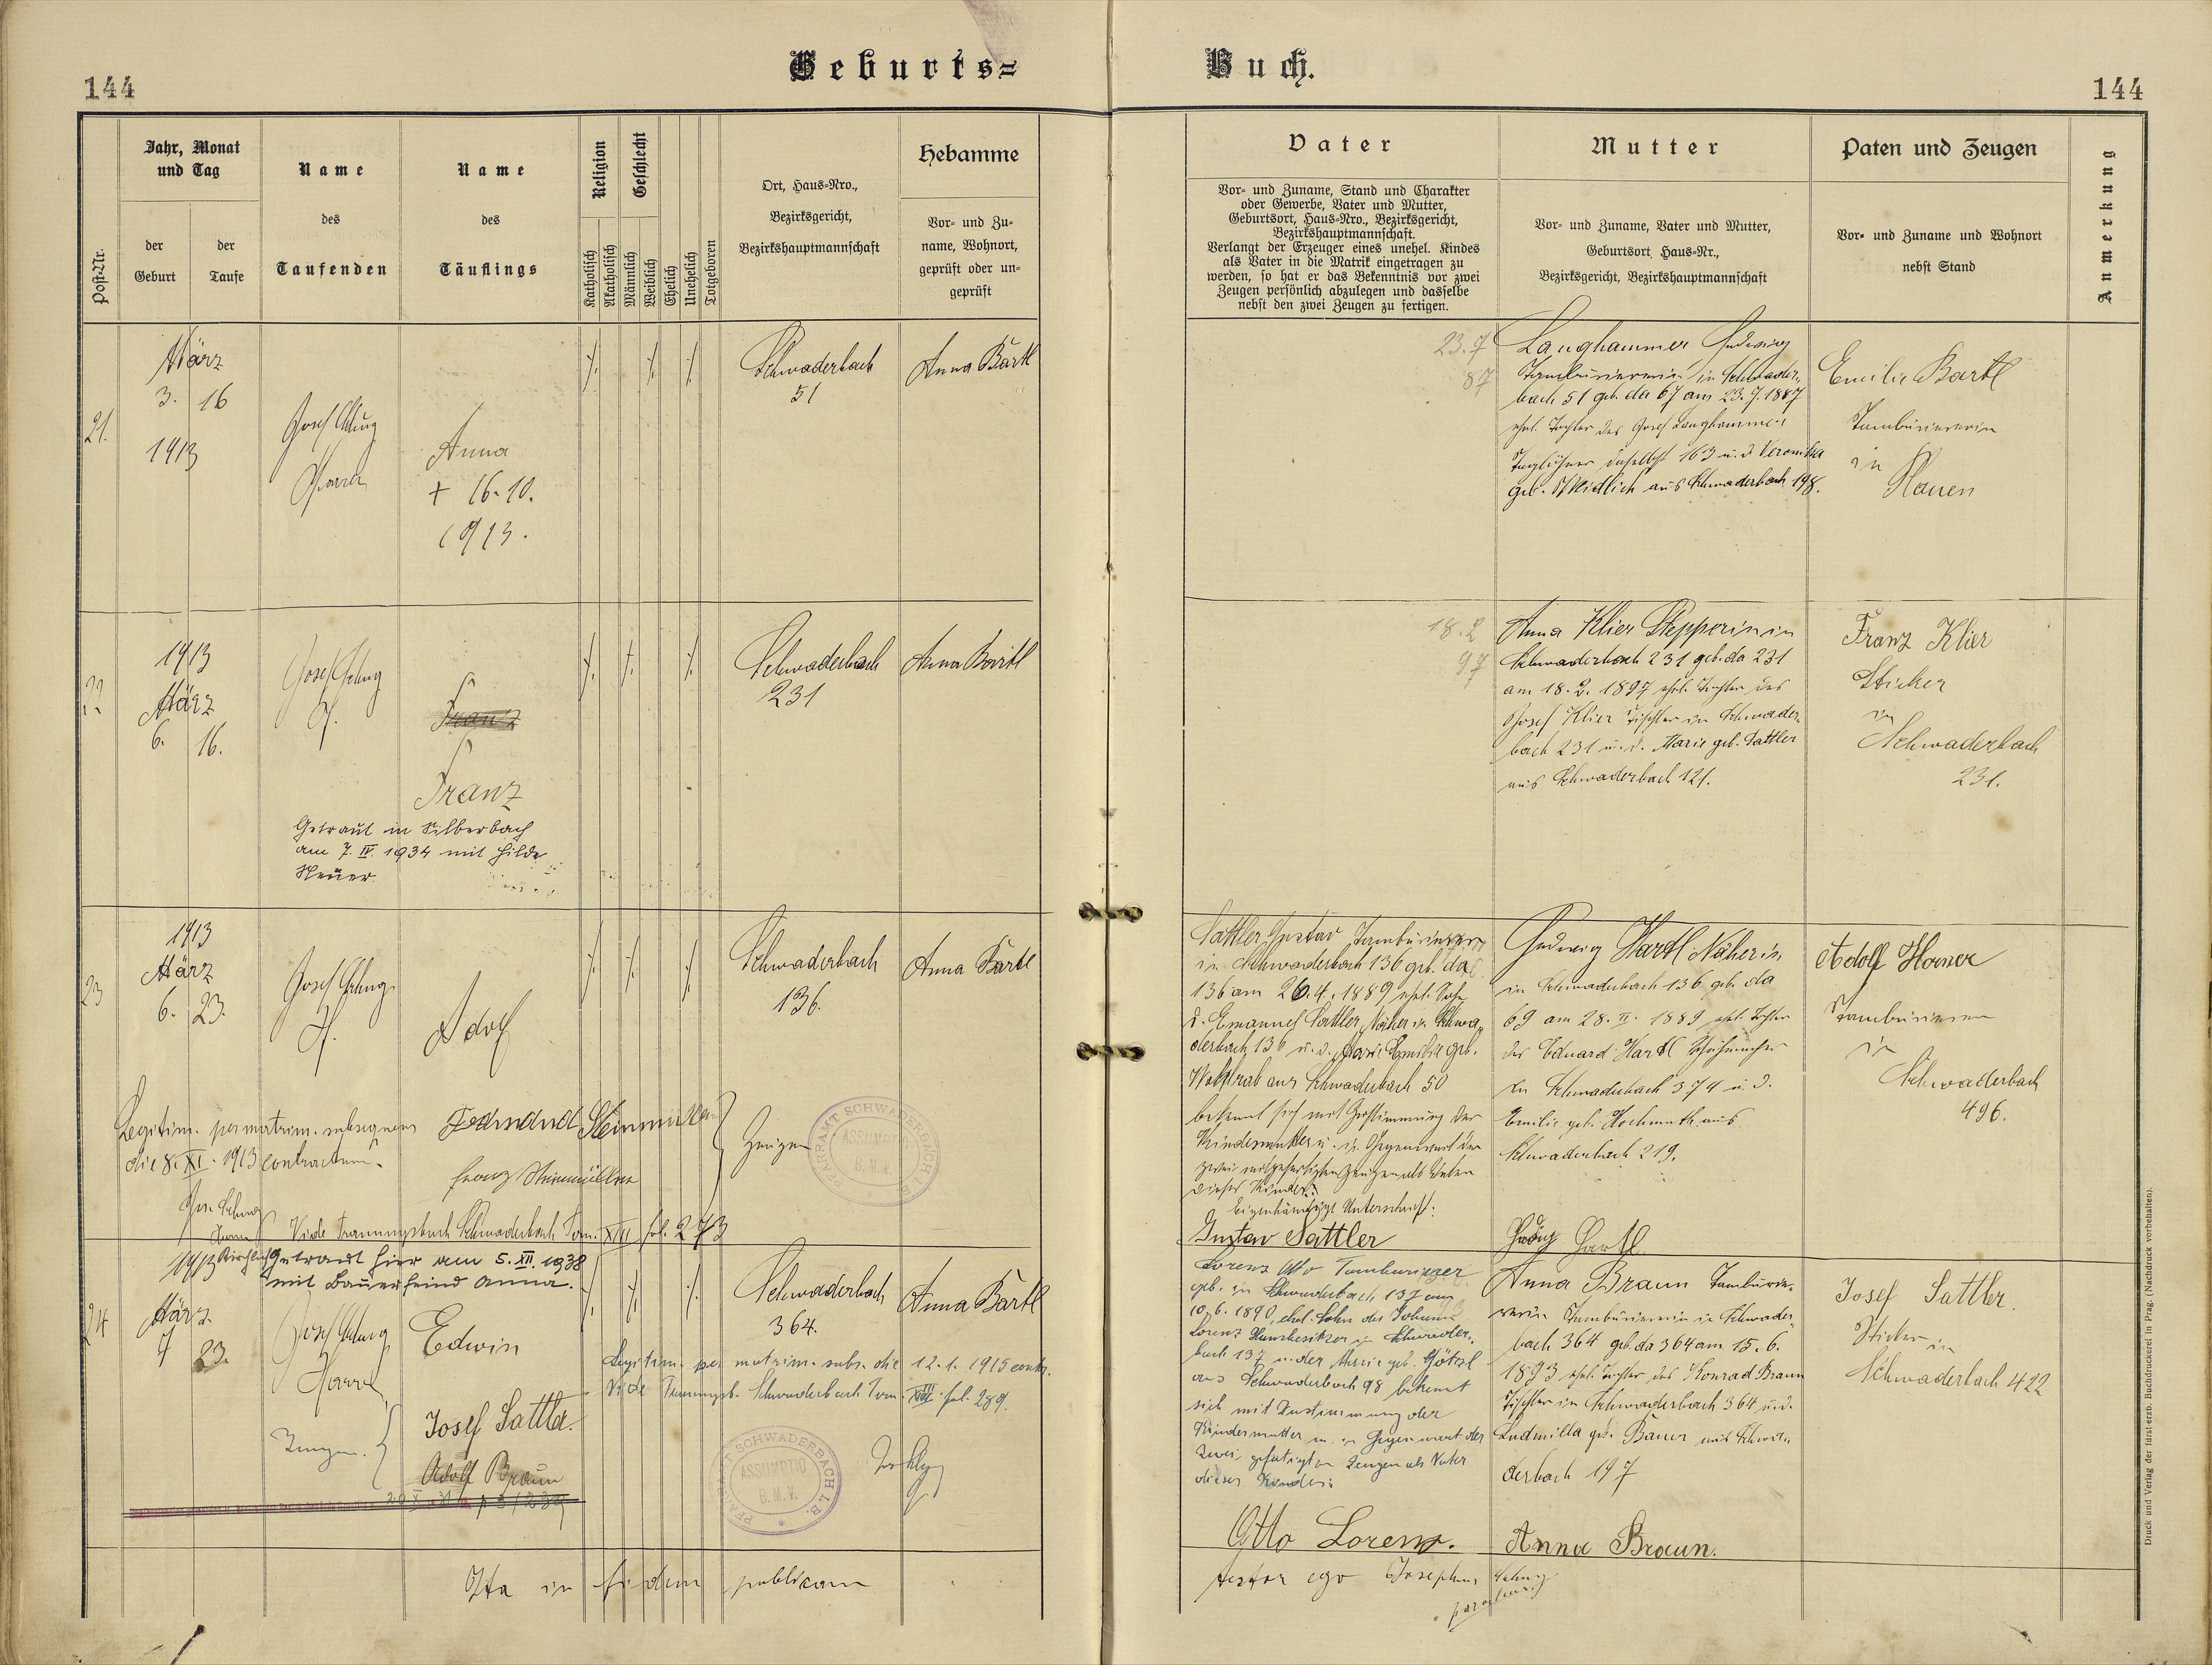 Geburts=
Buch.
144
144
Post-Nr.
Jahr, Monat
und Tag
der
Geburt
der
Taufe
Name
des
Taufenden
Name
des
Täuflings
Religion
Katholisch
Akatholisch
Geschlecht
Männlich
Weiblich
Ehelich
Unehelich
Totgeboren
Ort, Haus-Nro.,
Bezirksgericht,
Bezirkshauptmannschaft
Hebamme
Vor- und Zu-
name, Wohnort,
geprüft oder un-
geprüft
Vater
Vor- und Zuname, Stand und Charakter
oder Gewerbe, Vater und Mutter,
Geburtsort, Haus-Nro., Bezirksgericht,
Bezirkshauptmannschaft.
Verlangt der Erzeuger eines unehel. Kindes
als Vater in die Matrik eingetragen zu
werden, so hat er das Bekenntnis vor zwei
Zeugen persönlich abzulegen und dasselbe
nebst den zwei Zeugen zu fertigen.
Mutter
Vor- und Zuname, Vater und Mutter,
Geburtsort, Haus-Nr.,
Bezirksgericht, Bezirkshauptmannschaft
Paten und Zeugen
Vor- und Zuname und Wohnort
nebst Stand
Anmerkung
21.
März
3. 16
1913
Josef
Pfarrer
Anna
+ 16.10.
1913.
Schwaderbach
51
Anna Bartl
23.7
87
Langhammer Hedwig
Tambouriererin in Schwader-
bach 51 geb. da 67 am 23.7.1887
ehel. Tochter des Josef Langhammer
Taglöhner daselbst 163 u. d. Veronika
geb. aus Schwaderbach 198.
Emilie Bartl
Tambouriererin
in
Plauen
22
1913
März
6. 16.
Josef
Pf.
Franz
Franz
Getraut in Silberbach
am 7. IV. 1934 mit Hilde
Schwaderbach
231
Anna Bartl
18.2
97
Anna Klier Stepperin in
Schwaderbach 231 geb. da 231
am 18.2.1897 ehel. Tochter des
Josef Klier Tischler in Schwader-
bach 231 u. d. Marie geb. Sattler
aus Schwaderbach 121.
Franz Klier
Sticker
in
Schwaderbach
231.
23
1913
März
6. 23.
Josef
Pf.
Adolf
Schwaderbach
136.
Anna Bartl
Legitim. per matrim. subsequens
die 8. XI. 1913 contractum.
Ferdinand Steinmüller
Franz Steinmüller
Zeugen
PFARRAMT SCHWADERBACH I.B.
ASSUMPTIO
B.M.V.
Vide Trauungsbuch Schwaderbach Tom. XIII fol. 273
Sattler Gustav Tambourierer
in Schwaderbach 136 geb. da
136 am 26.4.1889 ehel. Sohn
d. Emanuel Sattler, Näher in Schwa-
derbach 136 u. d. Marie Emilie geb.
aus Schwaderbach 50
bekennt sich mit Zustimmung der
Kindesmutter u. in Gegenwart der
zwei mitgefertigten Zeugen als Vater
dieses Kindes.
Eigenhändige Unterschrift:
Gustav Sattler
Hedwig Hartl Näherin
in Schwaderbach 136 geb. da
69 am 28. II. 1889 ehel. Tochter
des Eduard Hartl Schuhmacher
in Schwaderbach 374 u. d.
Emilie geb. Hochmuth aus
Schwaderbach 219.
Hedwig Hartl
Adolf Horner
Tambourierer
in
Schwaderbach
496.
24
1913
Kirchlich Getraut hier am 5. XII. 1938
mit Bauerfeind Anna.
März
7 23.
Josef
Pfarrer
Edwin
Schwaderbach
364.
Anna Bartl
Legitim. per matrim. subs. die 12.1.1915 contr.
Vide Trauungsb. Schwaderbach Tom. XIII fol. 289.
Zeugen.
Josef Sattler
Adolf Braun
PFARRAMT SCHWADERBACH I.B.
ASSUMPTIO
B.M.V.
Lorenz Otto Tambourierer
geb. in Schwaderbach 137 am
10.6.1890, ehel. Sohn des Johann
Lorenz Hausbesitzer in Schwader-
bach 137 u. der Marie geb. Götzl
aus Schwaderbach 98 bekennt
sich mit Zustimmung der
Kindesmutter u. in Gegenwart der
zwei gefertigten Zeugen als Vater
dieses Kindes:
Otto Lorenz.
Anna Braun Tambourie-
rerin Tambouriererin in Schwader-
bach 364 geb. da 364 am 15.6.
1893 ehel. Tochter des Konrad Braun
Tischler in Schwaderbach 364 u. d.
Ludmilla geb. Bauer aus Schwa-
derbach 197
Anna Braun.
Josef Sattler.
Sticker in
Schwaderbach 422
Ita in fidem publicam
testor ego Josephus
parochus
Druck und Verlag der fürst-erzb. Buchdruckerei in Prag. (Nachdruck vorbehalten).